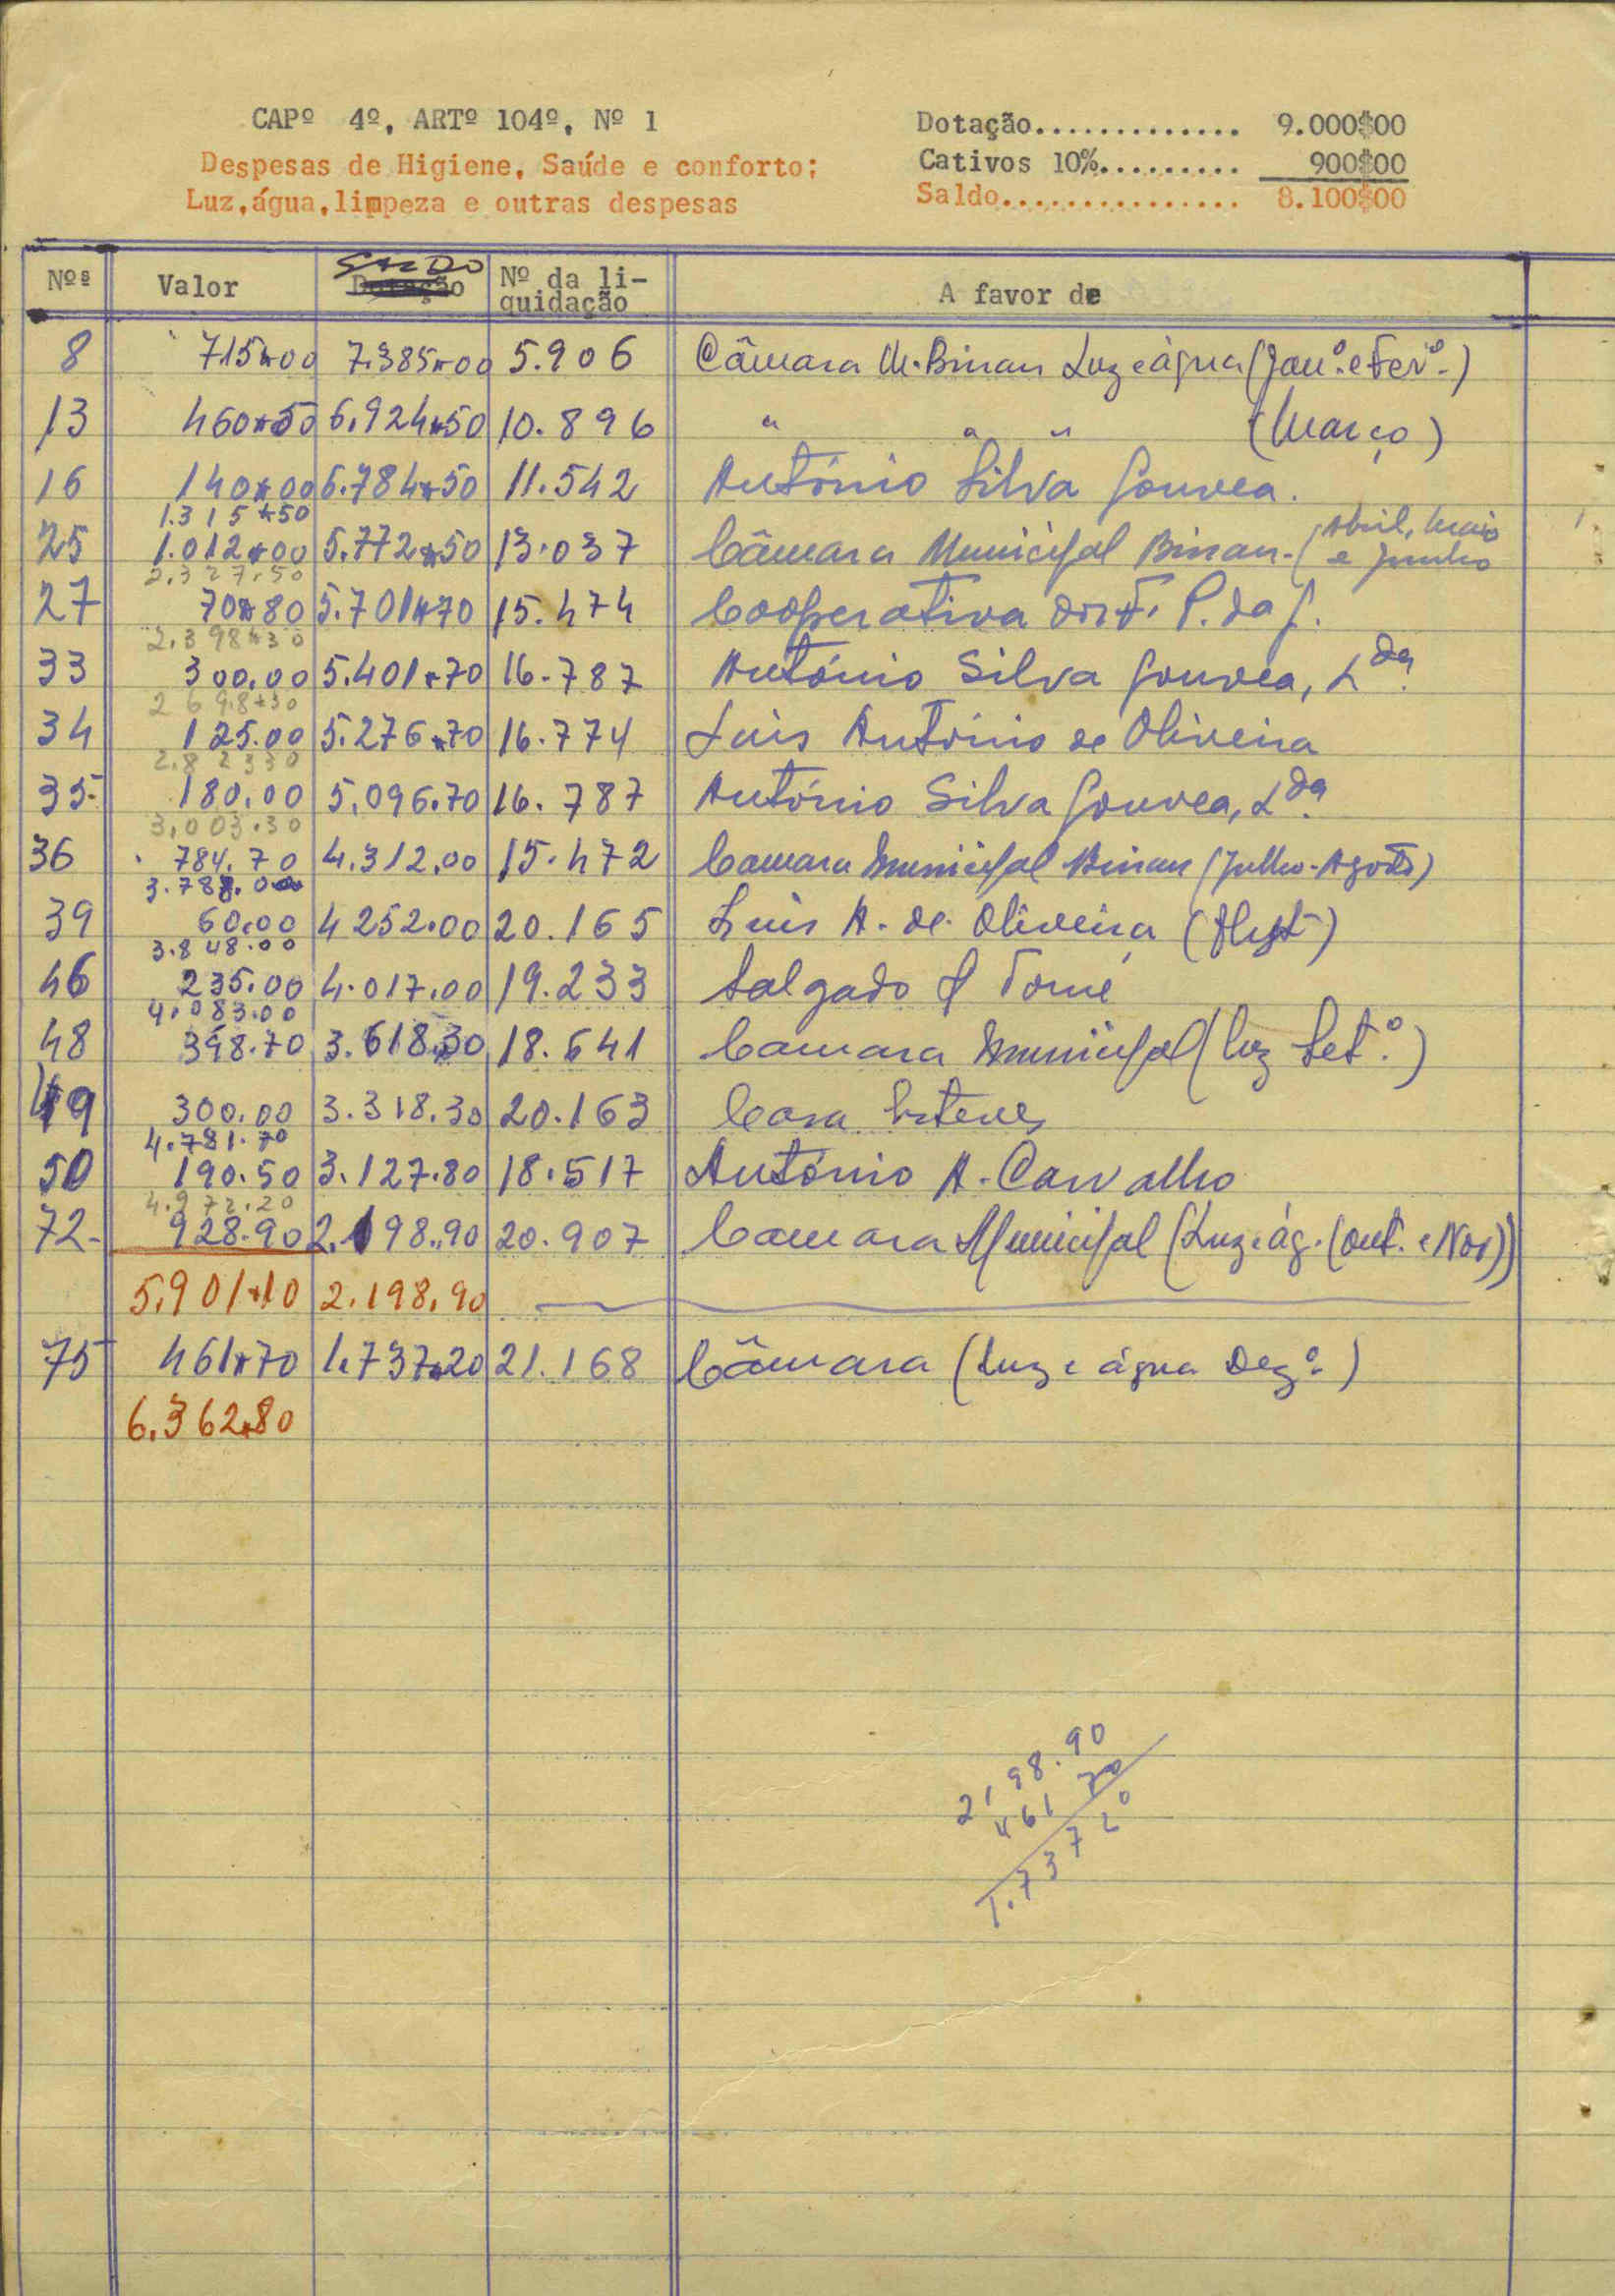 CAPº 4º, ARTº 104º, Nº 1
Despesas de Higiene, Saúde e conforto:
Luz,água,limpeza e outras despesas
Dotação............. 9.000$00
Cativos 10%......... 900$00
Saldo............... 8.100$00
Nºs Valor SALDO Dotação Nº da li-quidação A favor de
8 715$00 7.385$00 5.906 Câmara M. Bissau Luz e água (Janº. e Fevº.)
13 460$50 6.924$50 10.896 " " " (Março)
16 140$00 6.784$50 11.542 António Silva Gouvea.
1.315$50
25 1.012$00 5.772$50 13.037 Câmara Municipal Bissau - (Abril, Maio e Junho
2.327.50
27 70$80 5.701$70 15.474 Cooperativa dos F. P. da G.
2.398$30
33 300.00 5.401$70 16.787 António Silva Gouvea, Lda.
2698$30
34 125.00 5.276$70 16.774 Luis António de Oliveira
2.82330
35 180.00 5.096.70 16.787 António Silva Gouvea, Lda.
3.003.30
36 784.70 4.312.00 15.472 Camara Municipal Bissau (Julho-Agosto)
3.788.00
39 60.00 4252.00 20.165 Luis A. de Oliveira
3.848.00
46 235.00 4.017.00 19.233 Salgado & Tomé
4.083.00
48 398.70 3.618.30 18.641 Camara Municipal (luz Setº.)
49 300.00 3.318.30 20.163 Casa Esteves
4.781.70
50 190.50 3.127.80 18.517 António A. Carvalho
4.972.20
72- 928.90 2.198.90 20.907 Camara Municipal (Luz e ág. (out. e Nov))
5.901$10 2.198.90
75 461$70 1.737$20 21.168 Câmara (Luz e água Dezº.)
6.362$80
2198.90
461 70
1.737 20